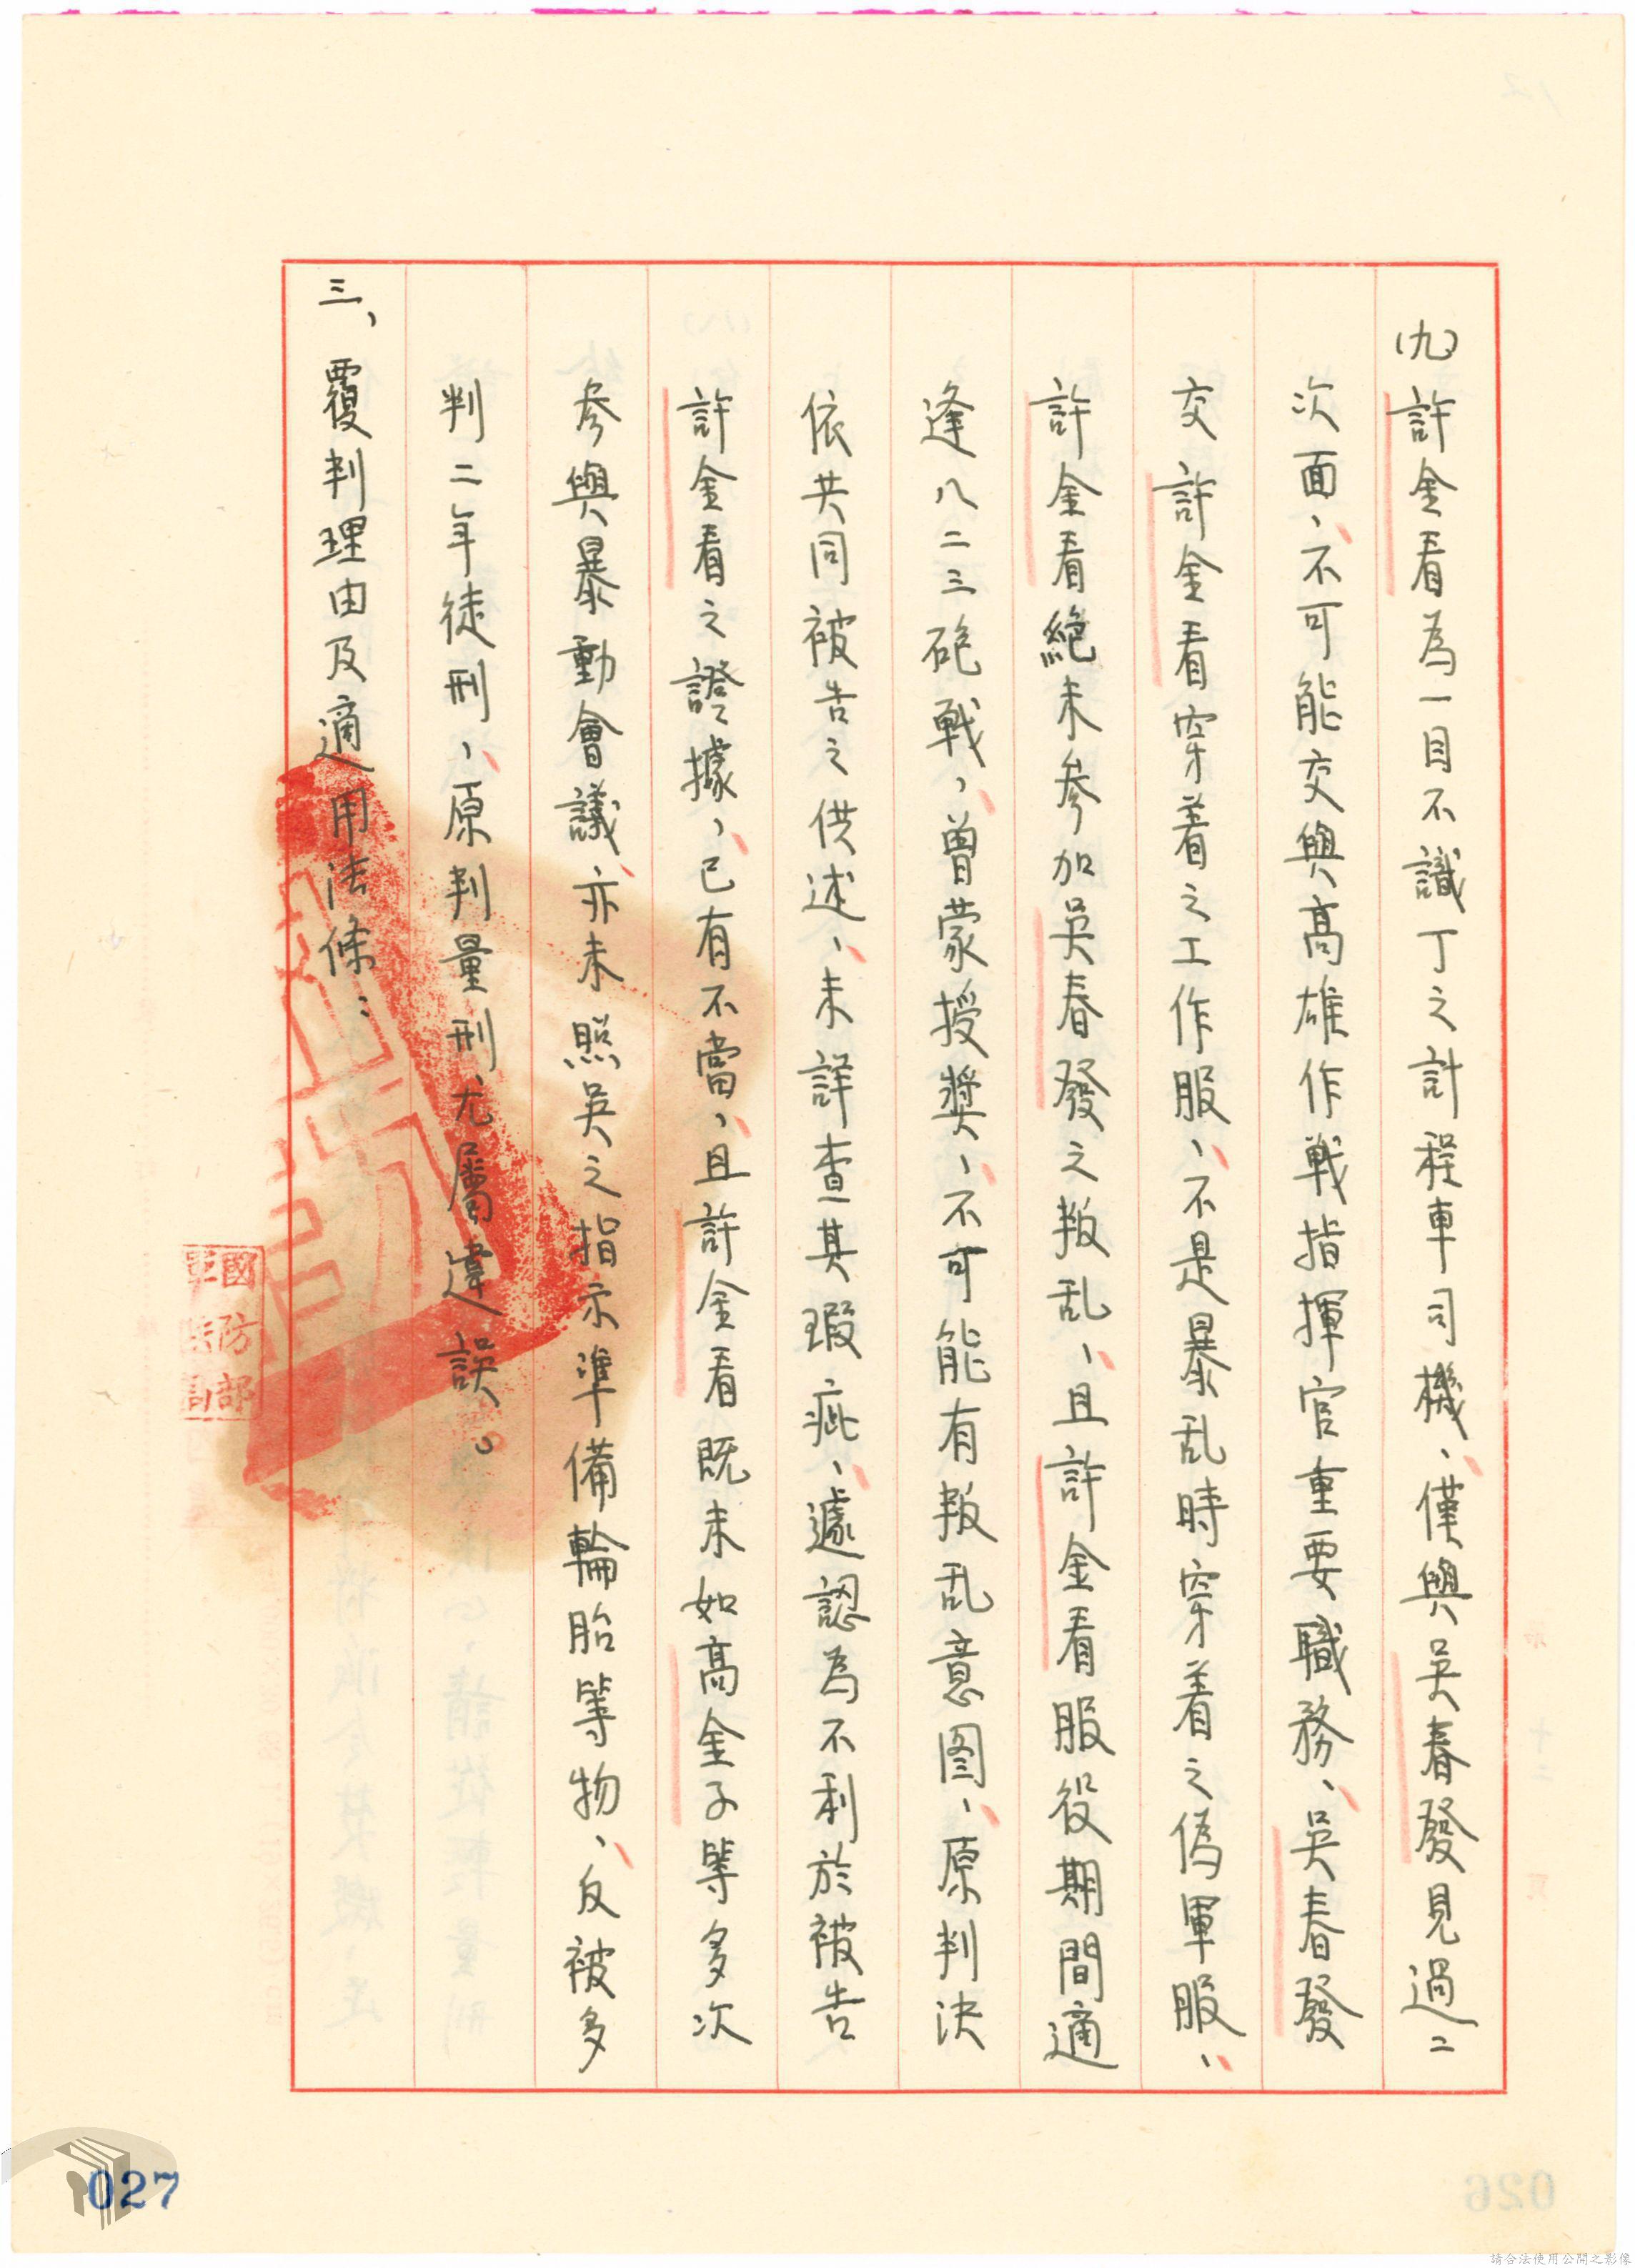 (九)許金看為一目不識丁之計程車司機、僅與吳春發見過二
次面、不可能交與高雄作戰指揮官重要職務、吳春發
交許金看穿着之工作服、不是暴乱時穿着之偽軍服、
許金看絕未參加吳春發之叛乱、且許金看服役期間適
逢八二三砲戰、曾蒙授獎、不可能有叛乱意图、原判決
依共同被告之供述、未詳查其瑕疵、遽認為不利於被告
許金看之證據、已有不當、且許金看既未如高金子等多次
參與暴動會議、亦未照吳之指示準備輪胎等物、反被多
判二年徒刑、原判量刑尤屬違誤。
三、覆判理由及適用法條：
國防部
軍法局
027
026
請合法使用公開之影像